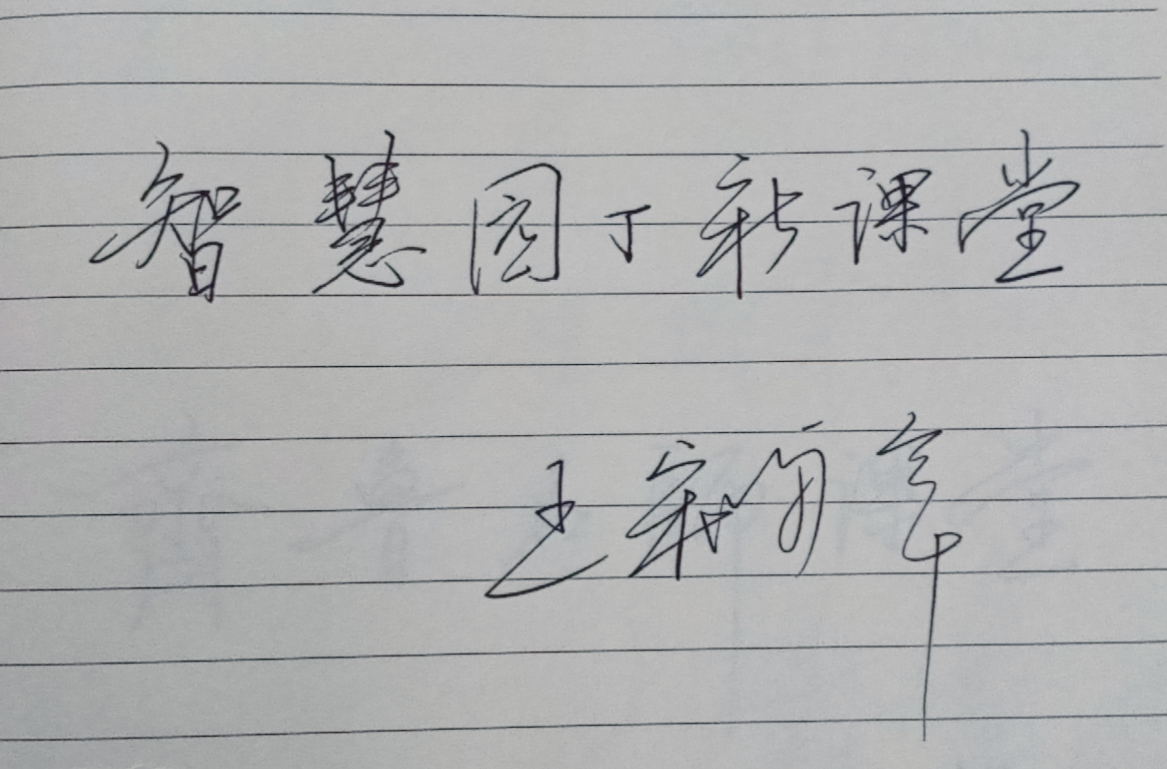 智慧园丁新课堂
王